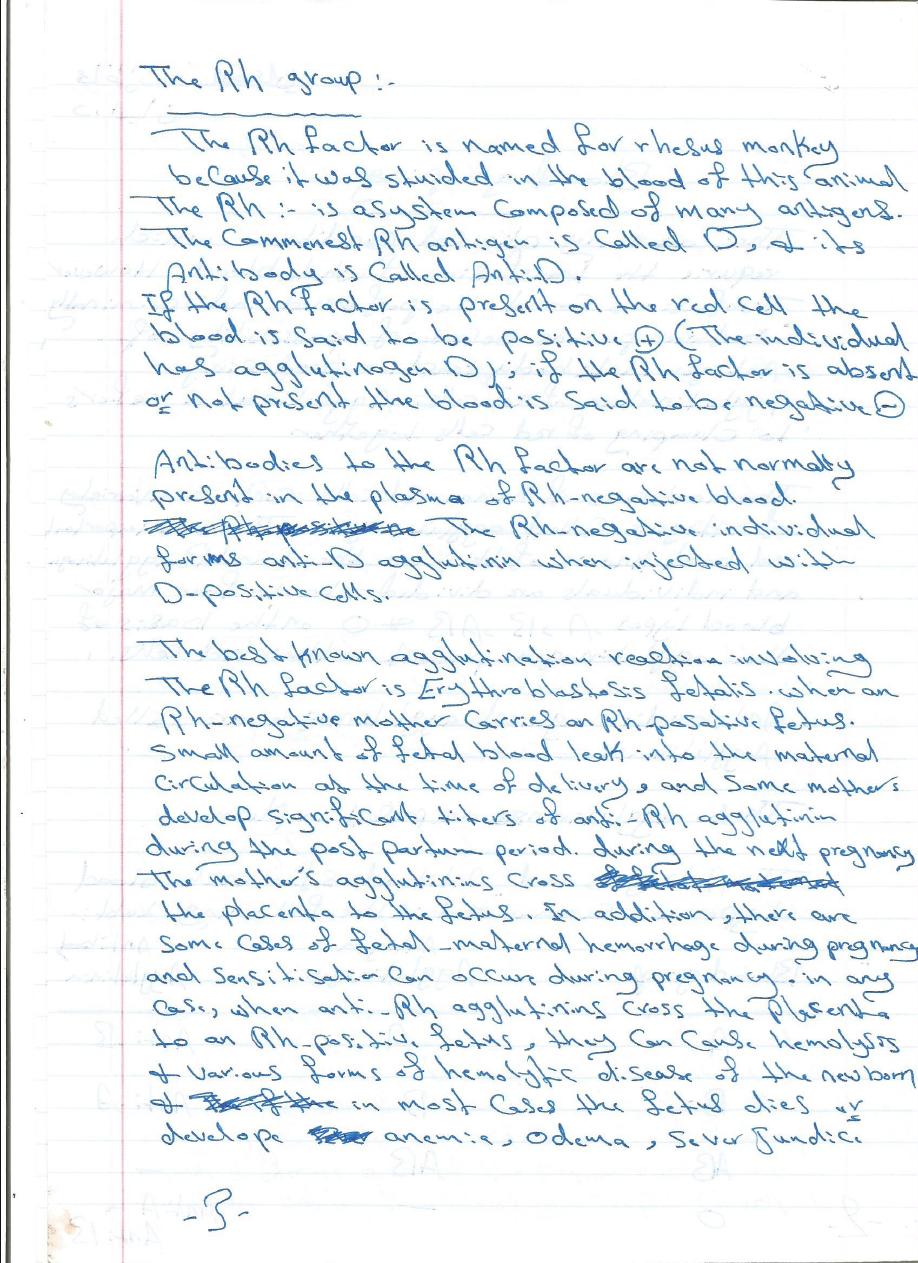 The Rh group :-
The Rh factor is named for rhesus monkey
because it was stuided in the blood of this animal
The Rh :- is asystem composed of many antigens.
The Commenest Rh antigen is Called D, & its
Antibody is Called Anti-D.
If the Rh factor is present on the red cell the
blood is said to be positive ⊕ (The individual
has agglutinogen D), if the Rh factor is absent
or not present the blood is said to be negative ⊖
Antibodies to the Rh factor are not normally
present in the plasma of Rh-negative blood.
The Rh-negative individual
forms anti-D agglutinin when injected with
D-positive cells.
The best known agglutination reaction involving
The Rh factor is Erythroblastosis fetalis. when an
Rh-negative mother Carries an Rh-posative fetus.
Small amount of fetal blood leak into the maternal
Circulation at the time of delivery, and some mother's
develop significant titers of anti-Rh agglutinin
during the post partum period. during the next pregnancy
The mother's agglutinins cross
the placenta to the fetus. In addition, there are
some cases of fetal-maternal hemorrhage during pregnancy
and sensitisation can occure during pregnancy. in any
case, when anti-Rh agglutinins cross the placenta
to an Rh-positive fetus, they can cause hemolysis
& various forms of hemolytic disease of the newborn
& in most cases the fetus dies or
develope anemia, Odema, sever Jundice
-3-